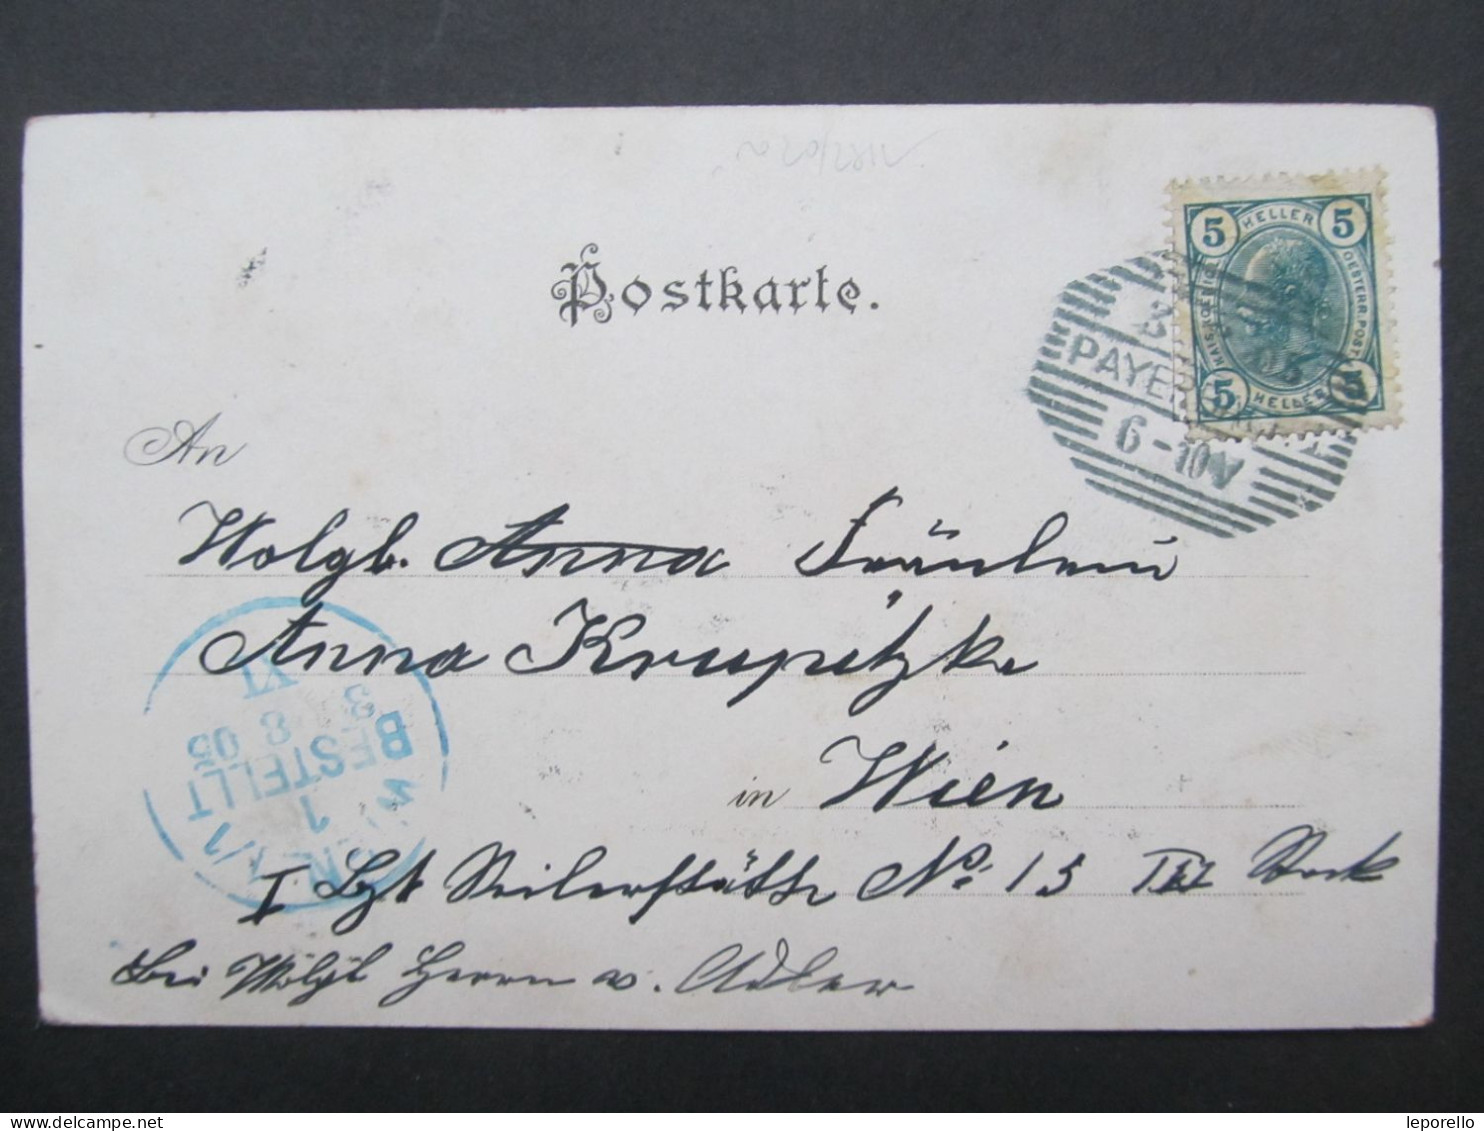 Postkarte.
5 HELLER 5
KAIS. KOENIGL. OESTERR. POST
5 HELLER
PAYER
6-10
An
Wolgb. Anna Fräulein
Anna Krupitzke
in Wien
I Bzk Seilerstätte No. 15 III Stock
Bei Wolgb Herrn v. Adler
WIEN 1/1
1
BESTELLT
3 8 05
VI
leporello